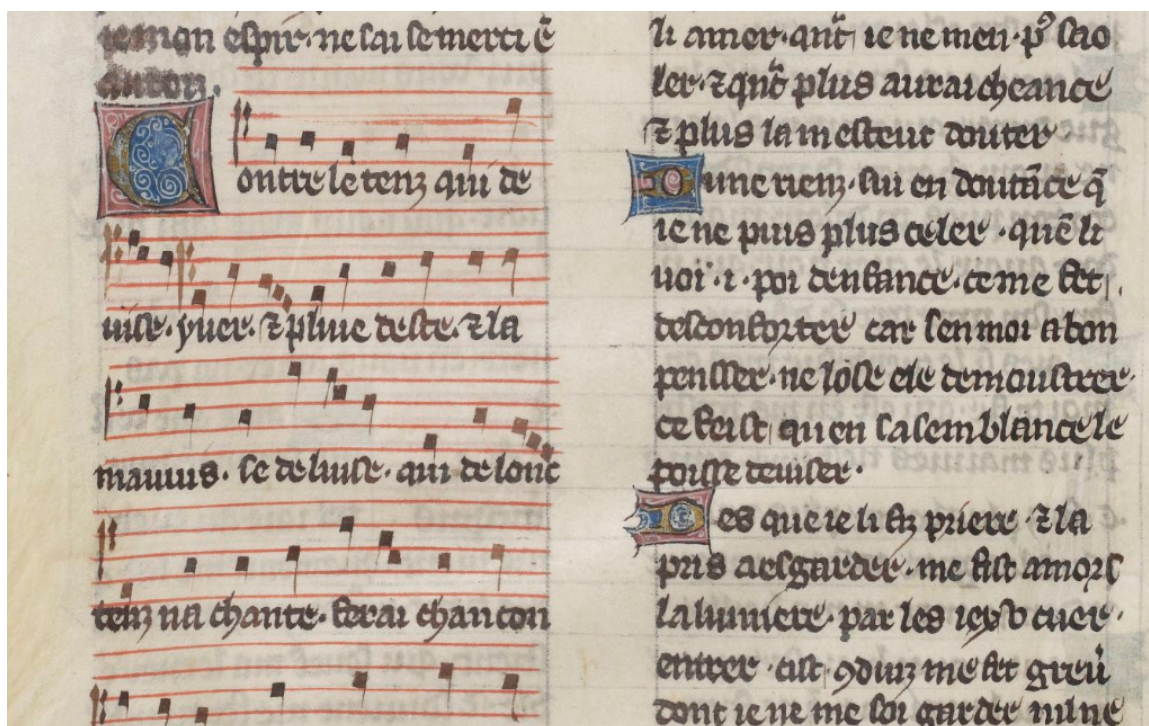 ie mon espir · ne sai se merci ē
chanton .
Contre le tenz qui de
uise · yuer · ⁊ pluie deste · ⁊ la
mauuis · se deluise · qui de lonc
tenz na chante · ferai chancon
li amer · qn̄t ie ne men · p⁹ sao
ler · ⁊ qn̄t plus aurai cheance
⁊ plus la mesteut douter
Dune rienz · sui en doutāce q̄
ie ne puis plus celer · quē li
uoi · i · poi denfance · ce me fet
desconforter car sen moi a bon
pensser · ne lose ele demoustrer ·
ce feist quen sa semblance le
poisse deuiser ·
Des que ie li fiz priere · ⁊ la
pris a esgarder · me fist amors
la lumiere · par les iex v cuer ·
entrer · cist ꝯduiz me fet greū
dont ie ne me soi garder ni ne